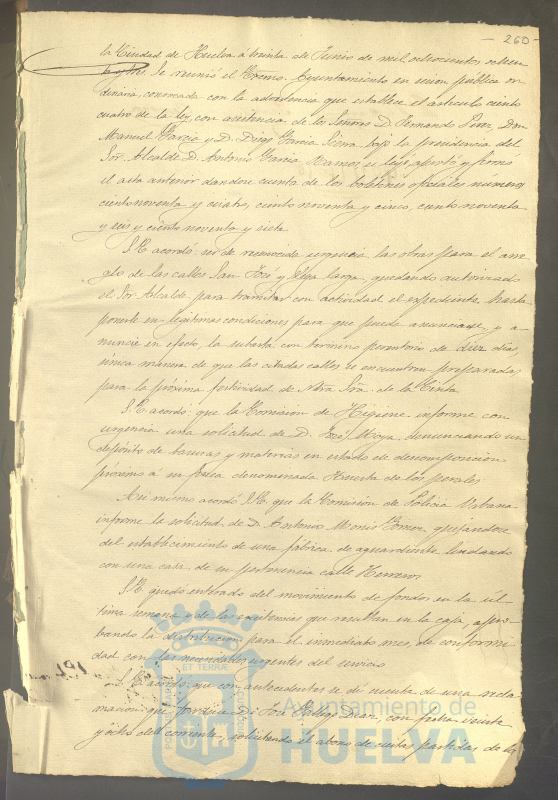 - 260 -
la Ciudad de Huelva á treinta de Junio de mil ochocientos ochen
ta y tres. Se reunió el Excmo. Ayuntamiento en sesion pública or
dinaria, convocada con la advertencia que establece el artículo ciento
cuatro de la ley, con asistencia de los Señores D. Fernando Perez, Don
Manuel García y D. Diego García bajo la presidencia del
Sor. Alcalde D. Antonio García Ramos se leyó, aprobó y firmó
el acta anterior dandose cuenta de los boletines oficiales números
ciento noventa y cuatro, ciento noventa y cinco, ciento noventa
y seis y ciento noventa y siete
S.E. acordó ser de reconocida urgencia las obras para el arre
glo de las calles San José y Vega larga, quedando autorizado
el Sor Alcalde para tramitar con actividad el expediente, hasta
ponerle en legítimas condiciones para que pueda anunciarse, y a-
nuncie en efecto, la subasta con término perentorio de diez dias,
única manera de que las citadas calles se encuentren preparadas
para la próxima festividad de Ntra Sra. de la Cinta
S.E. acordó: que la Comision de Higiene informe con
urgencia una solicitud de D. José Moya, denunciando un
depósito de basuras y materias en estado de descomposicion
próximo á su finca denominada Huerta de los perales
Asi mismo acordó S.E. que la Comision de Policía Urbana
informe la solicitud de D. Antonio quejándose
del establecimiento de una fábrica de aguardiente lindando
con una casa de su pertenencia calle Herreros
S.E. quedó enterado del movimiento de fondos en la úl-
tima semana y de las existencias que resultan en la caja, apro
bando la distribucion para el inmediato mes, de conformi
dad con las necesidades urgentes del servicio
S.E. acordó: que con antecedentes se dé cuenta de una recla
macion que produce D. José Díaz, con fecha veinte
y ocho del corriente, solicitando el abono de ciertas partidas de la
ET TERRAE
Ayuntamiento de
HUELVA